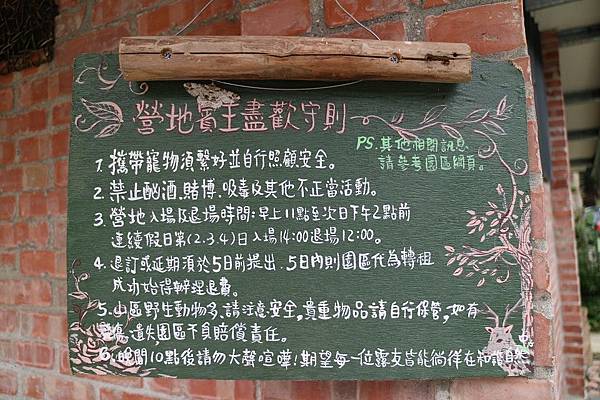 營地賓主盡歡守則
PS.其他相關訊息
請參考園區網頁。
1.攜帶寵物須繫好並自行照顧安全。
2.禁止酗酒.賭博.吸毒及其他不正當活動。
3.營地入場及退場時間:早上11點至次日下午2點前
連續假日第(2.3.4)日入場14:00退場12:00。
4.退訂或延期須於5日前提出.5日內則園區代為轉租
成功始得辦理退費。
5.山區野生動物多,請注意安全,貴重物品請自行保管,如有
遺失園區不負賠償責任。
6.晚間10點後請勿大聲喧嘩!期望每一位露友皆能徜徉在和諧自然